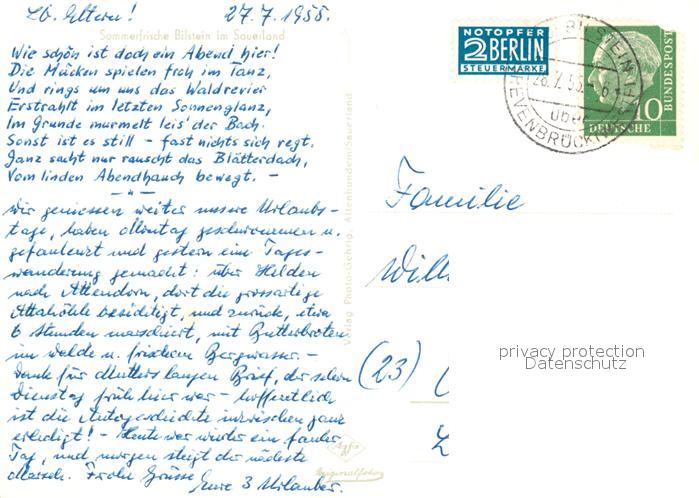 Lb. Eltern! 27.7.1955.
Sommerfrische Bilstein im Sauerland
Wie schön ist doch ein Abend hier!
Die Mücken spielen froh im Tanz,
Und rings um uns das Waldrevier
Erstrahlt im letzten Sonnenglanz,
Im Grunde murmelt leis' der Bach.
Sonst ist es still - fast nichts sich regt.
Ganz sacht nur rauscht das Blätterdach,
Vom linden Abendhauch bewegt. -
- " -
Wir geniessen weiter unsere Urlaubs-
tage, haben Montag geschwommen u.
gefaulenzt und gestern eine Tages-
wanderung gemacht: über Helden
nach Attendorn, dort die grossartige
Attahöhle besichtigt, und zurück, etwa
6 Stunden marschiert, mit Butterbroten
im Walde u. frischem Bergwasser. -
Dank für Mutters langen Brief, der schon
Dienstag früh hier war - hoffentlich
ist die Autogeschichte inzwischen ganz
erledigt! - Heute war wieder ein fauler
Tag, und morgen steigt der nächste
Marsch. Frohe Grüsse
Eure 3 Urlauber.
Verlag Photo-Gehrig, Altenhundem/Sauerland
Agfa
Originalfoto
NOTOPFER
2 BERLIN
STEUERMARKE
BILSTEIN
28.7.55.
über
GREVENBRÜCK
10
DEUTSCHE
BUNDESPOST
Familie
Will
(23)
privacy protection
Datenschutz